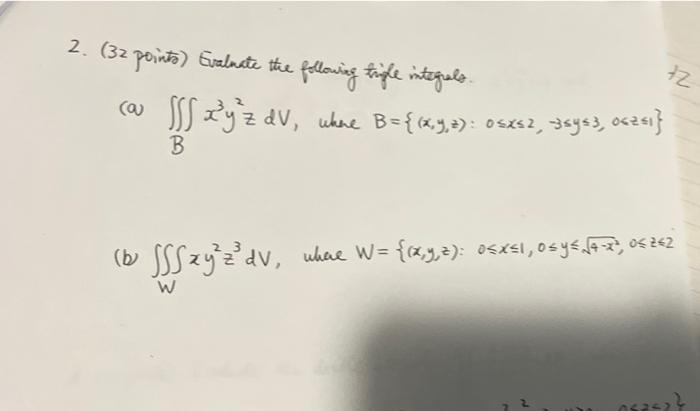 2. (32 points) Evaluate the following triple integrals.
(a) ∭_B x³y²z dV, where B = {(x,y,z): 0≤x≤2, -3≤y≤3, 0≤z≤1}
(b) ∭_W xy²z³ dV, where W = {(x,y,z): 0≤x≤1, 0≤y≤√(4-x²), 0≤z≤2